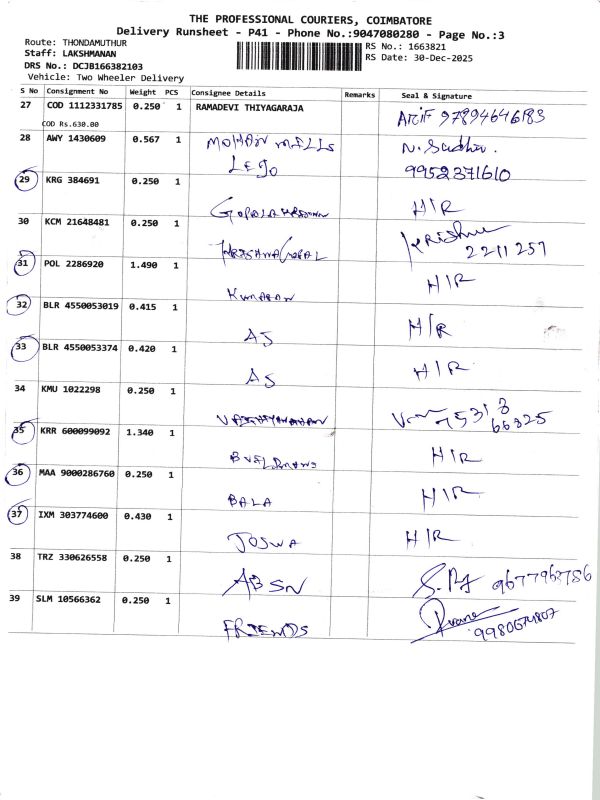 THE PROFESSIONAL COURIERS, COIMBATORE
Delivery Runsheet - P41 - Phone No.:9047080280 - Page No.:3
Route: THONDAMUTHUR
Staff: LAKSHMANAN
DRS No.: DCJB166382103
Vehicle: Two Wheeler Delivery
RS No.: 1663821
RS Date: 30-Dec-2025
S No Consignment No Weight PCS Consignee Details Remarks Seal & Signature
27 COD 1112331785 0.250 1 RAMADEVI THIYAGARAJA
COD Rs.630.00 97894646183
28 AWY 1430609 0.567 1 MOHAN MILLS
LEJO 9952371610
29 KRG 384691 0.250 1
H/R
30 KCM 21648481 0.250 1 Krishna
2211257
31 POL 2286920 1.490 1
KUMARAN H/R
32 BLR 4550053019 0.415 1
AJ H/R
33 BLR 4550053374 0.420 1
AJ H/R
34 KMU 1022298 0.250 1
35 KRR 600099092 1.340 1
H/R
36 MAA 9000286760 0.250 1
BALA H/R
37 IXM 303774600 0.430 1
JOSWA H/R
38 TRZ 330626558 0.250 1
ABSN
39 SLM 10566362 0.250 1
FRIENDS